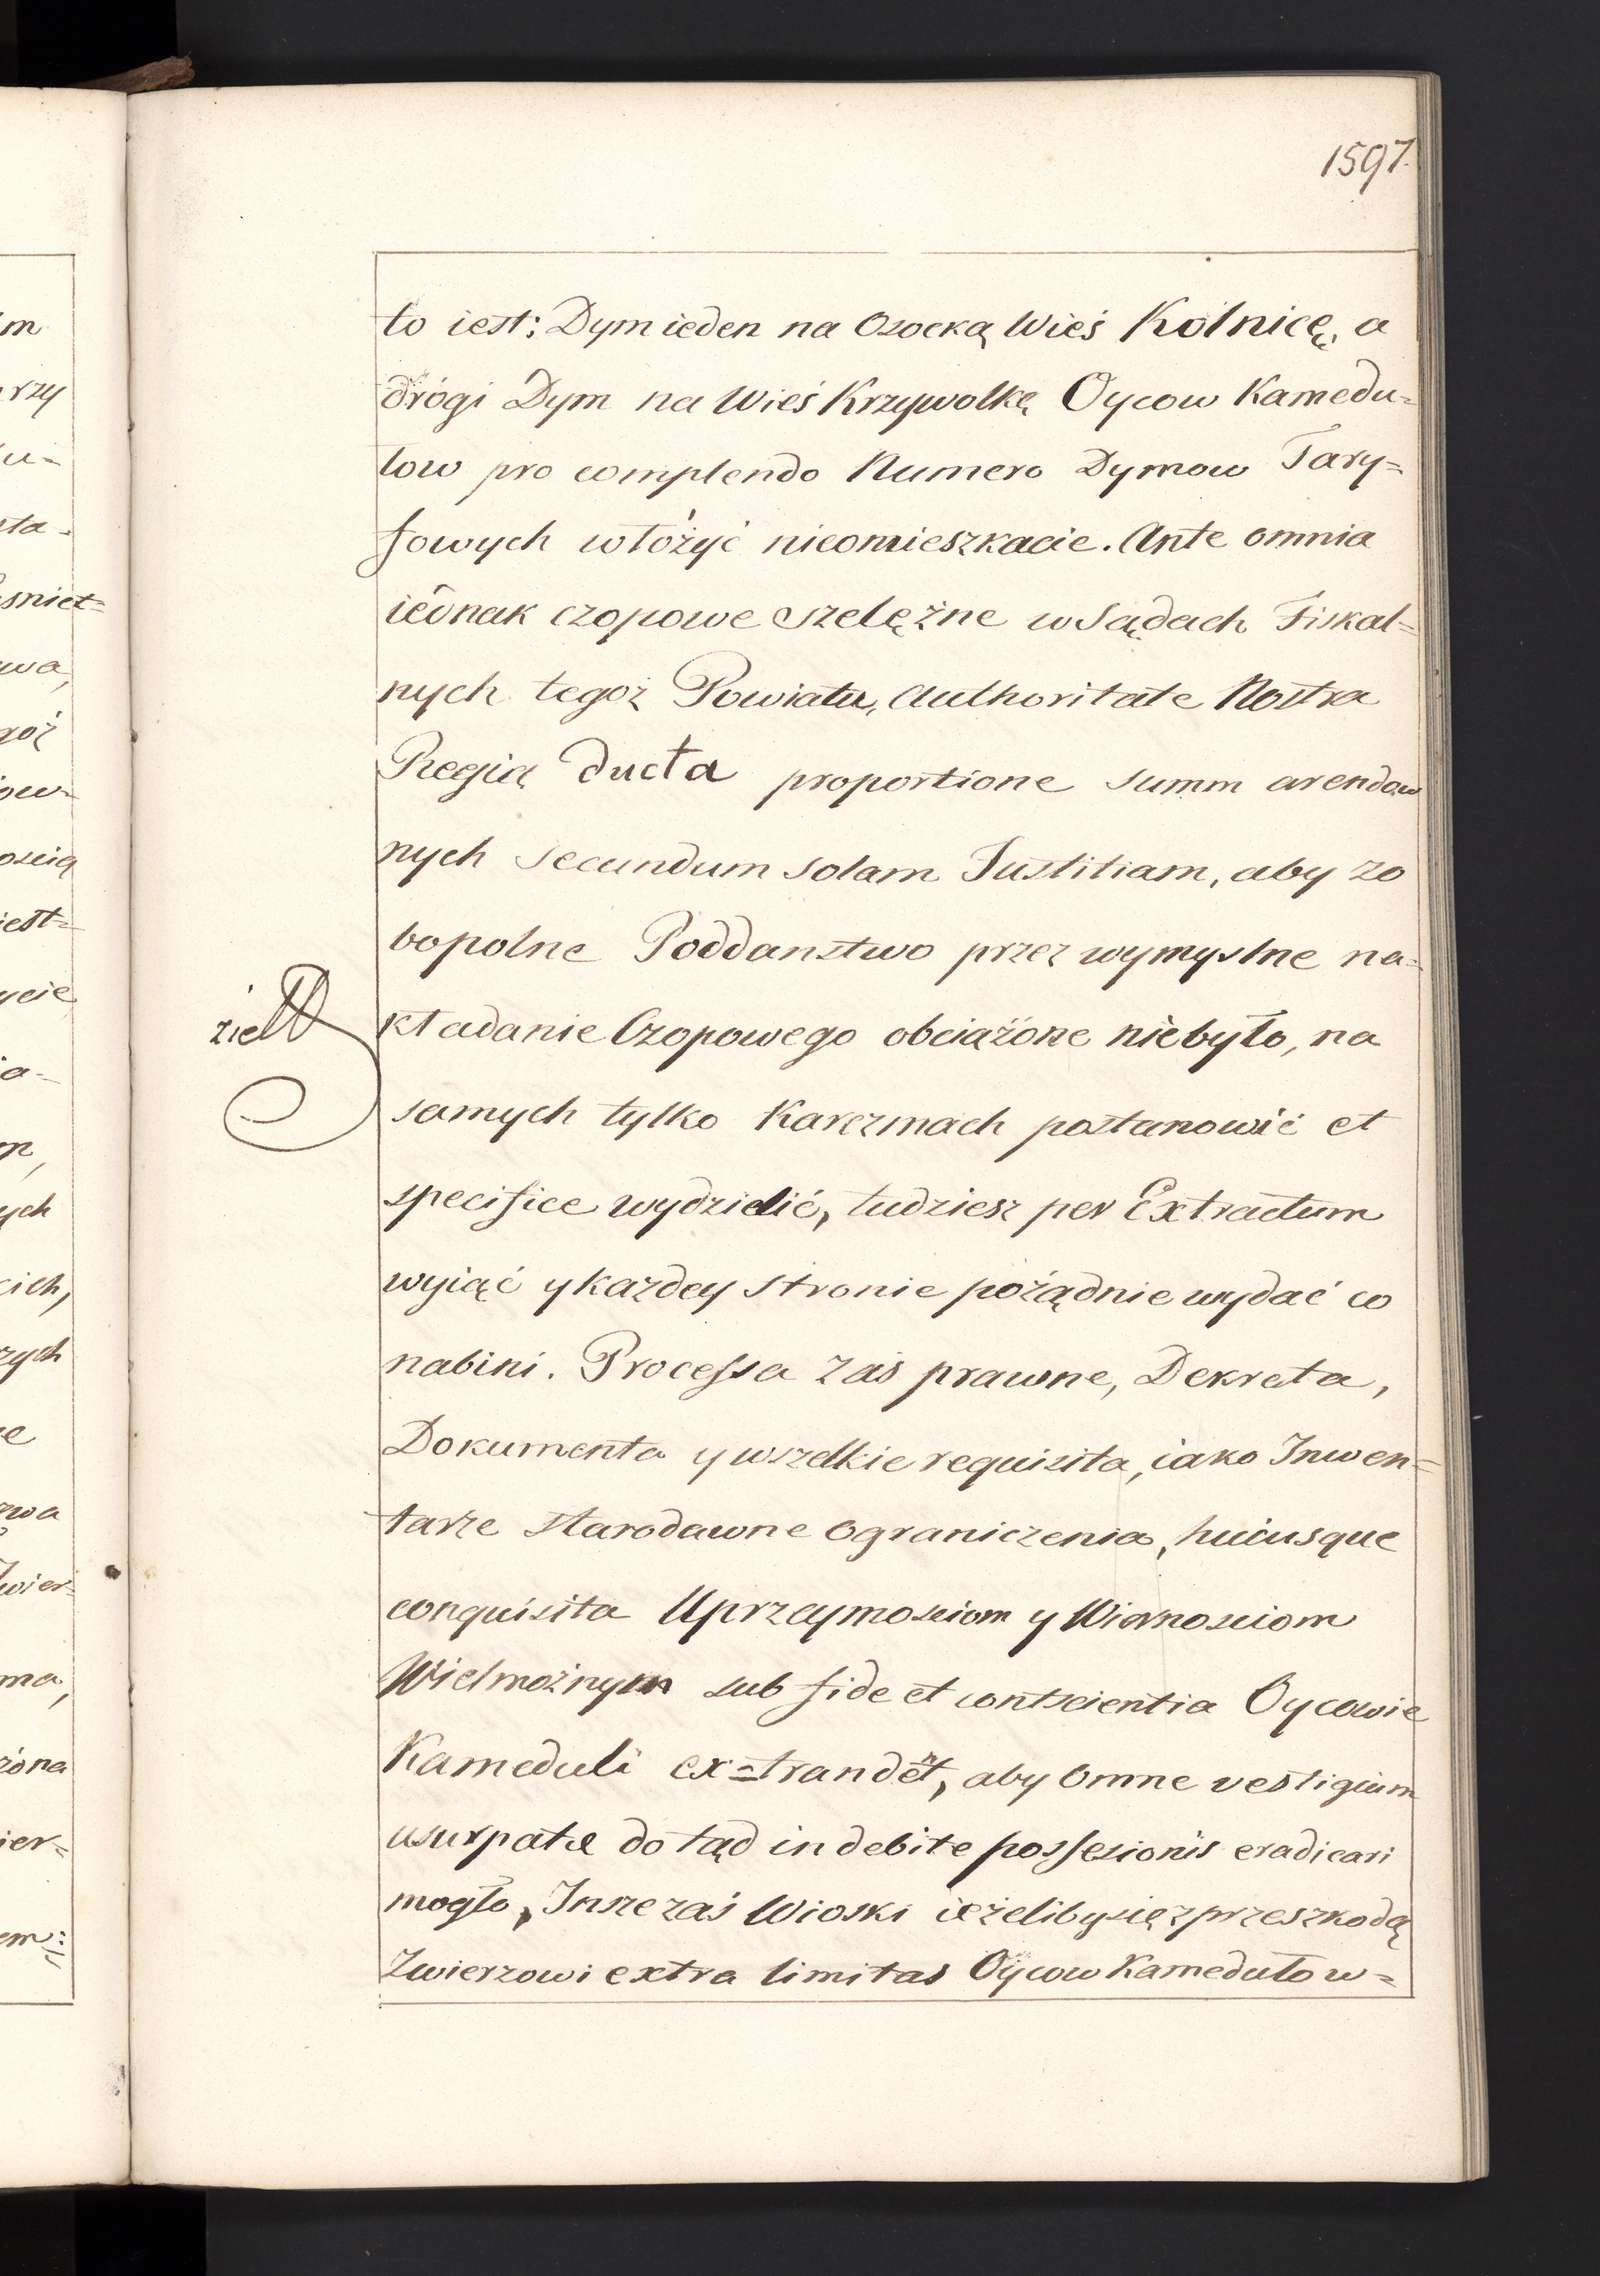 1597.
to iest: Dym ieden na Ozocką Wieś Kolnicę, a
drógi Dym na Wieś Krzywolkę Oycow Kamedu-
łow pro complendo Numero Dymow Tary-
fowych włożyć nieomieszkacie. Ante omnia
iednak czopowe szelężne w Sądach Fiskal-
nych tegoż Powiatu, Authoritate Nostra
Regią ducta proportione summ arendow
nych secundum solam Justitiam, aby zo
bopolne Poddanstwo przez wymyslne na-
kładanie Czopowego obciążone niebyło, na
samych tylko Karczmach postanowić et
specifice wydzielić, tudziesz per Extractum
wyiąć y każdey stronie pożądnie wydać co
nabini. Processa zaś prawne, Dekreta,
Dokumenta y wszelkie requisita, iako Inwen-
tarze starodawne ograniczenia, hucusque
conquisita Uprzeymosciom y Wiernosciom
Wielmożnym sub fide et contscientia Oycowie
Kameduli ex-trandēt, aby omne vestigium
usurpatæ do tąd indebite possesionis eradicari
mogło, Insze zaś Wioski ieżeliby się z przeszkodą
Zwierzowi extra limitas Oycow Kamedułow-
ziel